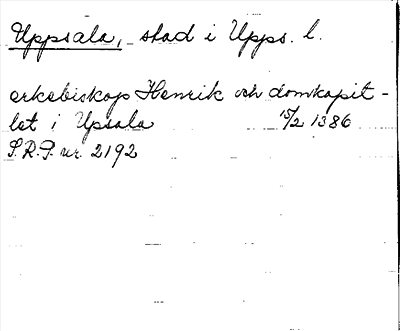 Uppsala, stad i Upps. l.
erkebiskop Henrik och domkapit-
let i Upsala 15/2 1386
S.R.P. nr. 2192